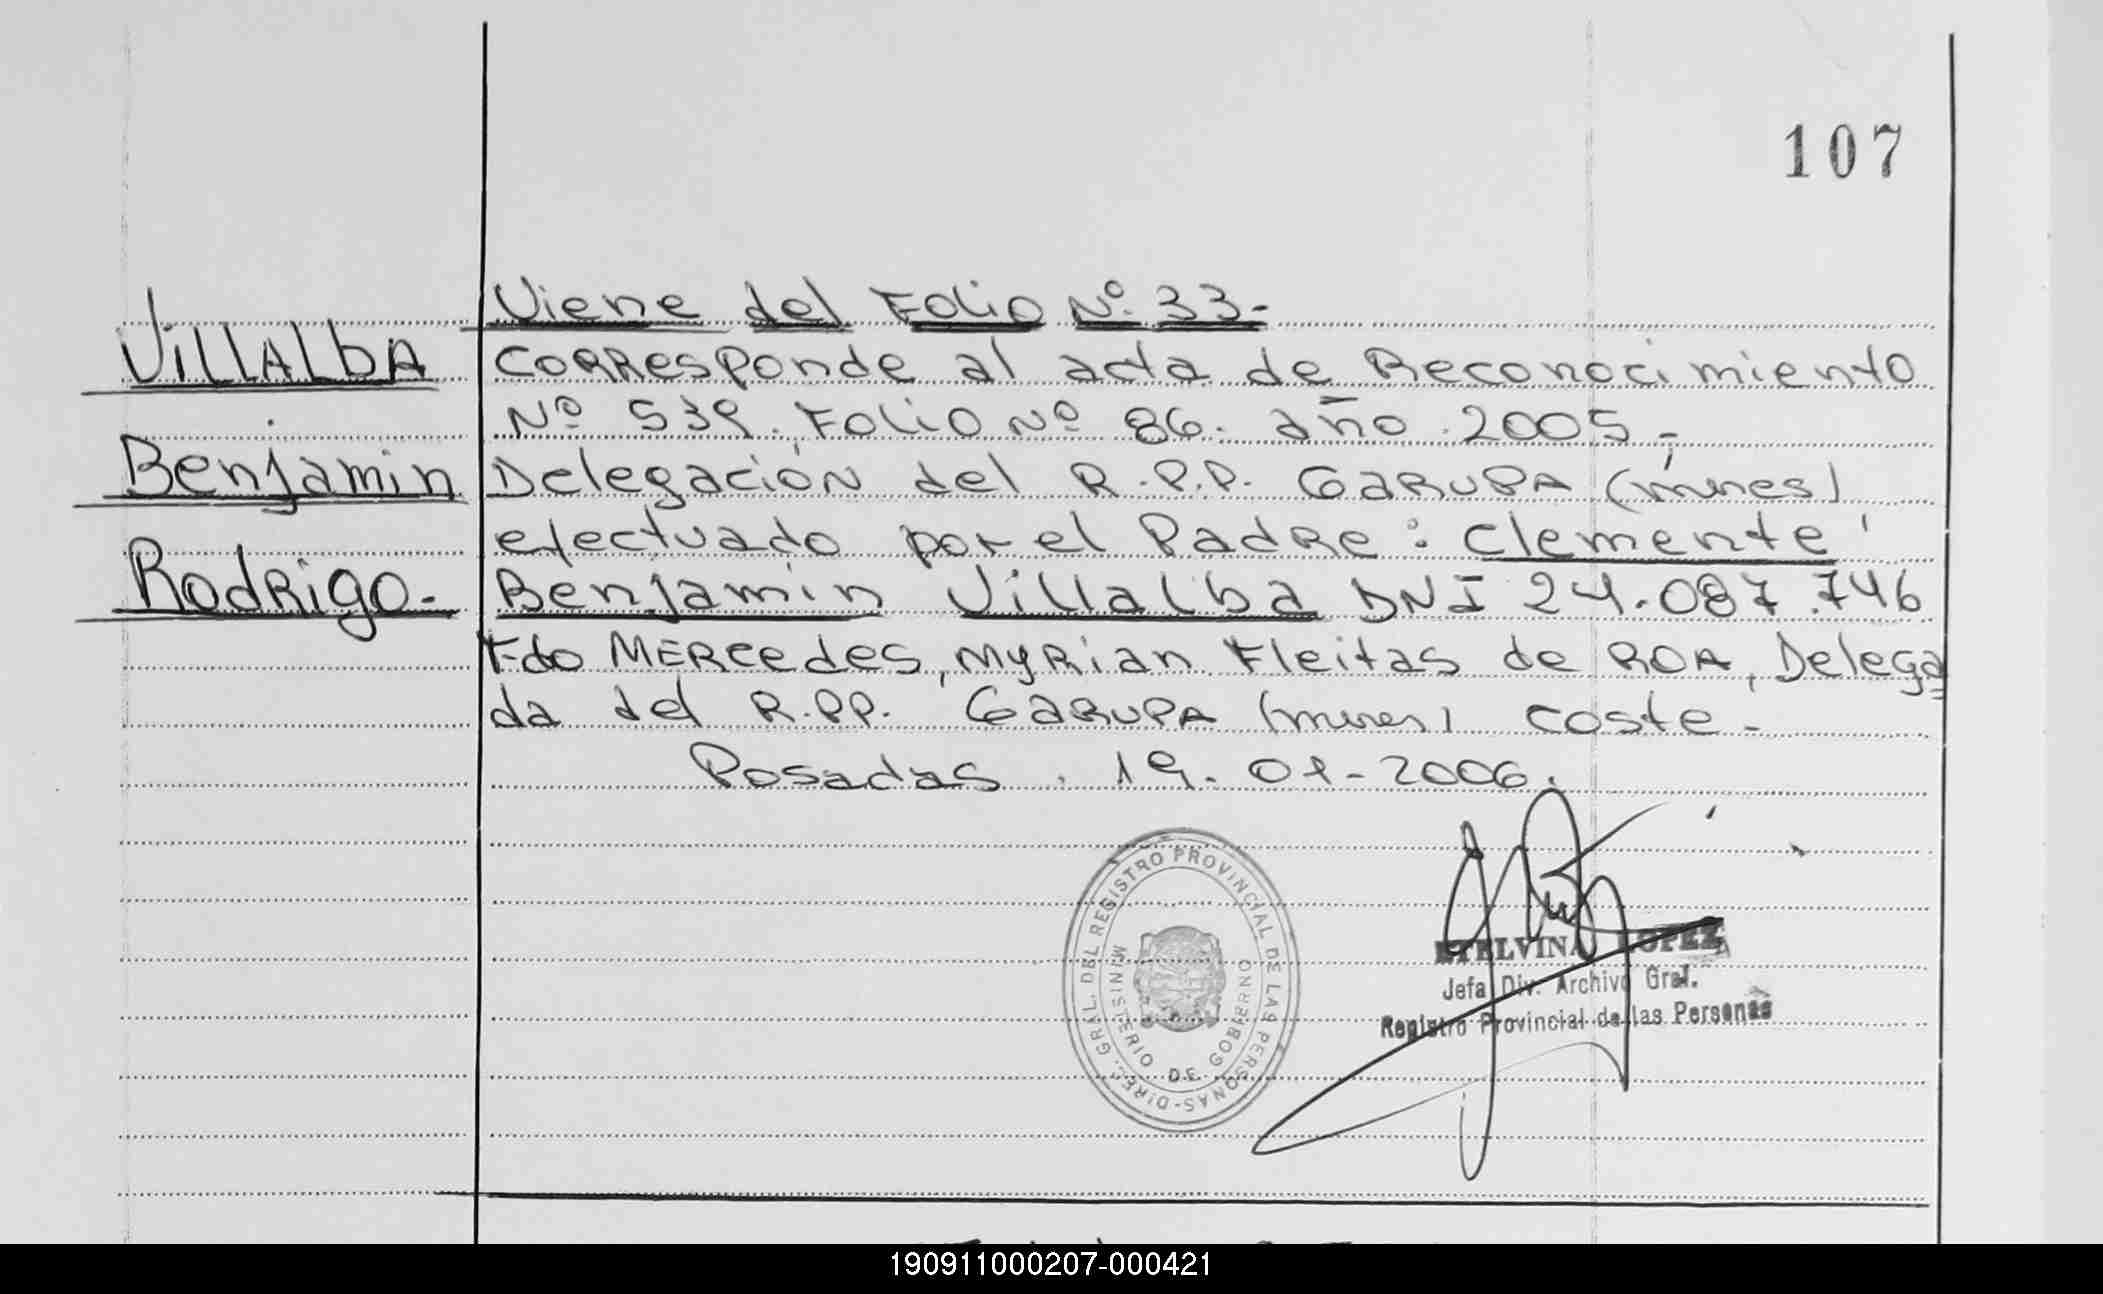 107
Viene del Folio Nº 33-
VillAlbA
Corresponde al acta de Reconocimiento
Nº 539. Folio Nº 86. año. 2005.-
Benjamin
Delegación del R.P.P. GARUPA (mnes)
efectuado por el Padre: Clemente
Rodrigo.-
Benjamin Villalba DNI 24.087.746
Fdo Mercedes, Myrian Fleitas de ROA, Delega
da del R.PP. GARUPA (mnes) coste-
Posadas. 19-01-2006.
DIREC. GRAL. DEL REGISTRO PROVINCIAL DE LAS PERSONAS-
MINISTERIO DE GOBIERNO
ETELVINA LOPEZ
Jefa Div. Archivo Gral.
Registro Provincial de las Personas
190911000207-000421